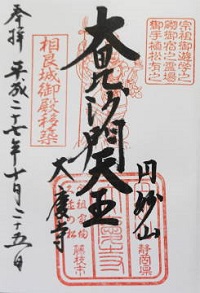 宗祖御遊学之
御宿之霊場
御手植松有之
静岡県
円妙山
大毘沙門天王
大慶寺
藤枝市
相良城御殿移築
奉拝 平成二十七年十月二十五日